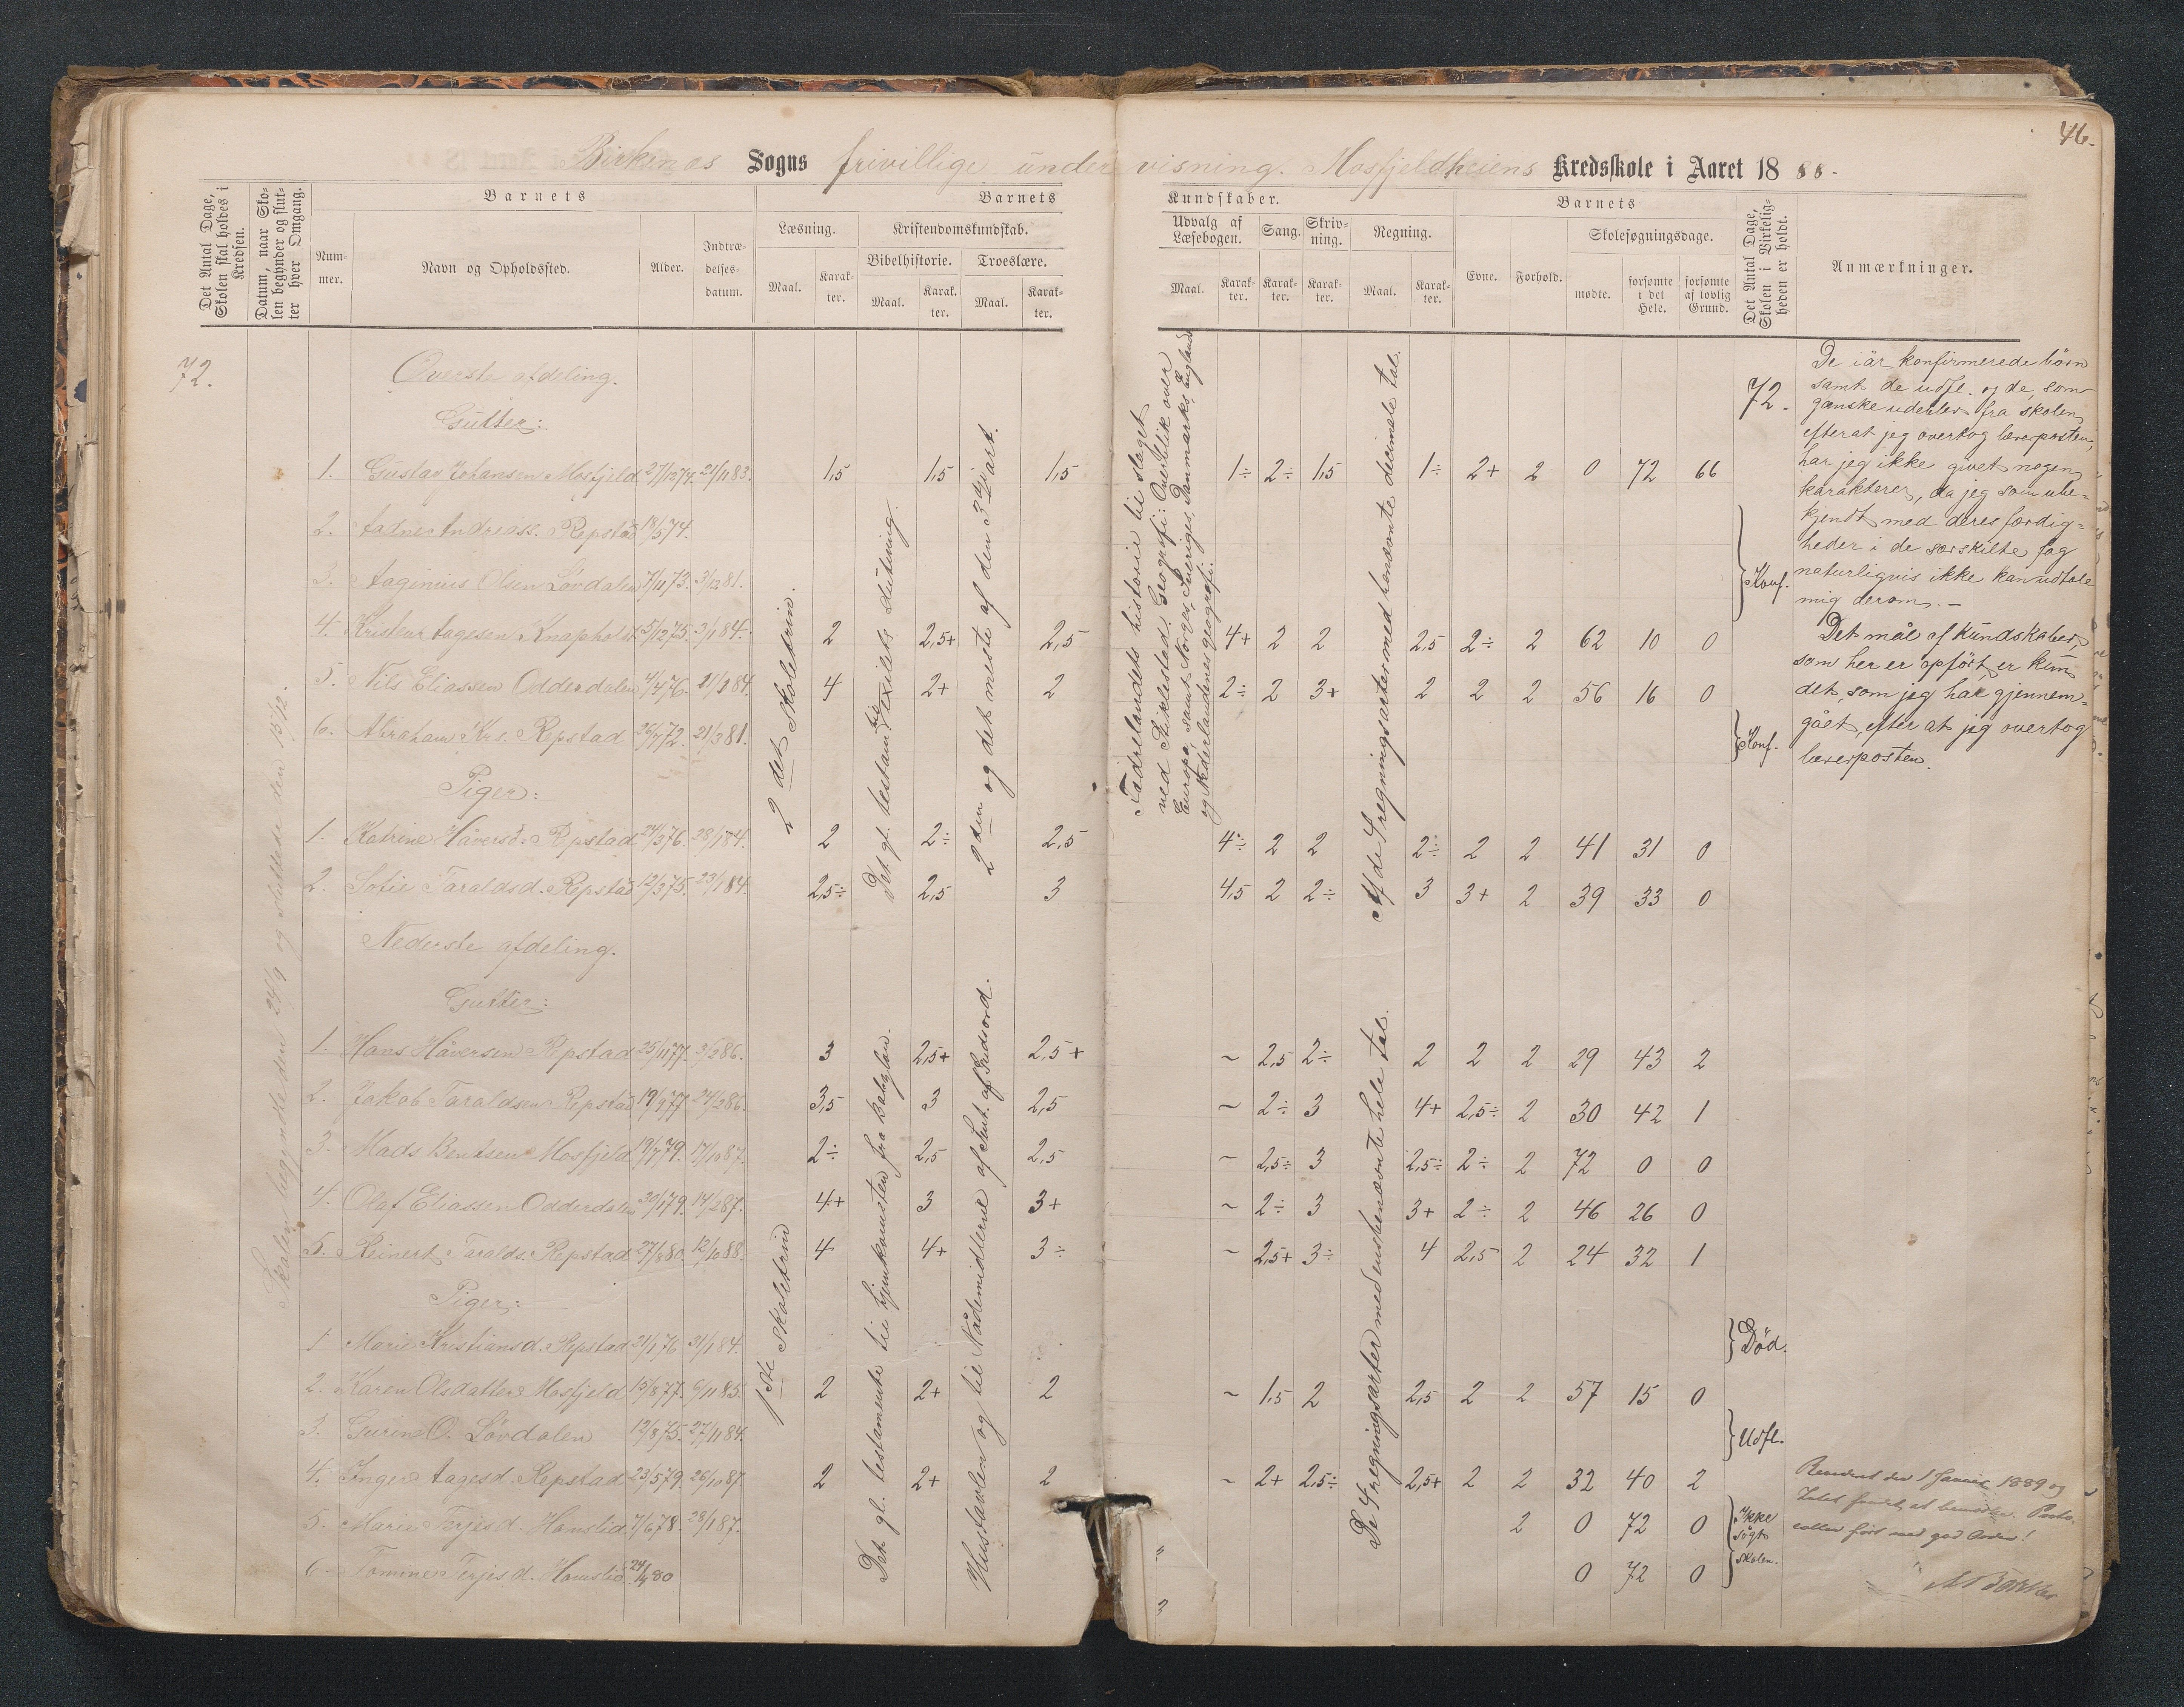 46.
Birkenes Sogns frivillige undervisning. Mosfjeldheiens Kredsskole i Aaret 1888.
Det Antal Dage, Skolen skal holdes i Kredsen.
Datum, naar Skolen begynder og slutter hver Omgang.
Barnets
Nummer.
Navn og Opholdssted.
Alder.
Indtrædelsesdatum.
Barnets Kundskaber.
Læsning.
Maal.
Karakter.
Kristendomskundskab.
Bibelhistorie.
Maal.
Karakter.
Troeslære.
Maal.
Karakter.
Udvalg af Læsebogen.
Maal.
Karakter.
Sang.
Karakter.
Skrivning.
Karakter.
Regning.
Maal.
Karakter.
Barnets
Evne.
Forhold.
Skolesøgningsdage.
mødte.
forsømte i det Hele.
forsømte af lovlig Grund.
Det Antal Dage, Skolen i Virkeligheden er holdt.
Anmærkninger.
72.
Skolen begyndte den 24/9 og sluttede den 15/12.
Øverste afdeling.
Gutter:
1. Gustav Johansen Mosfjeld 27/12 74. 21/11 83. 1,5 1,5 1,5 1÷ 2÷ 1,5 1÷ 2+ 2 0 72 66
2. Aadne Andreass. Repstad 18/5 74.
3. Aaginius Olsen Løvdalen 7/11 73. 3/12 81. Konf.
4. Kristen Aagesen Knapholst 5/12 75. 3/1 84. 2 2,5+ 2,5 4+ 2 2 2,5 2÷ 2 62 10 0
5. Nils Eliassen Odderdalen 4/4 76. 21/1 84. 4 2+ 2 2÷ 2 3+ 2 2 2 56 16 0
6. Abraham Krs. Repstad 26/7 72. 21/3 81. Konf.
Piger:
1. Katrine Håversd. Repstad 24/3 76. 28/1 84. 2 2÷ 2,5 4÷ 2 2 2÷ 2 2 41 31 0
2. Sofie Taraldsd. Repstad 12/3 75. 23/1 84. 2,5÷ 2,5 3 4,5 2 2÷ 3 3+ 2 39 33 0
2det Skoletrin.
Det gl. testam. til exilets slutning.
2den og det meste af den 3die art.
Fædrelandets historie til slaget
ved Stiklestad. Geografi: Overblik over
Europa, samt Norges, Sveriges, Danmarks, Englands
og Nederlandenes geografi.
Af de 4 regningsarter med benævnte decimale tal.
Nederste afdeling.
Gutter:
1. Hans Håversen Repstad 25/11 77. 3/2 86. 3 2,5+ 2,5+ ~ 2,5 2÷ 2 2 2 29 43 2
2. Jakob Taraldsen Repstad 19/9 77. 24/2 86. 3,5 3 2,5 ~ 2÷ 3 4+ 2,5÷ 2 30 42 1
3. Mads Bentsen Mosfjeld 19/7 79. 17/10 87. 2÷ 2,5 2,5 ~ 2,5÷ 3 2,5÷ 2÷ 2 72 0 0
4. Olaf Eliassen Odderdalen 30/1 79. 14/2 87. 4+ 3 3+ ~ 2÷ 3 3+ 2÷ 2 46 26 0
5. Reinert Taralds. Repstad 27/8 80. 12/10 88. 4 4+ 3÷ ~ 2,5+ 3÷ 4 2,5 2 24 32 1
Piger:
1 Marie Kristiansd. Repstad 21/1 76 31/1 84. Død.
2. Karen Olsdatter Mosfjeld 15/8 77. 6/11 85. 2 2+ 2 ~ 1,5 2 2,5 2 2 57 15 0
3. Gurine O. Løvdalen 12/8 75. 27/11 84. Udfl.
4. Inger Aagesd. Repstad 23/5 79. 26/10 87. 2 2+ 2 ~ 2+ 2,5÷ 2,5+ 2 2 32 40 2
5. Marie Terjesd. Homstid 7/6 78. 28/1 87. 2 0 72 0
6 Tomine Terjesd. Homstid 24/4 80 0 72 0
Ikke søgt skolen.
1ste Skoletrin
Det gl. testamente til hjemkomsten fra Babylon.
Hustavlen og til Nådemidlerne af Slut. af Guds ord.
De 4 regningsarter med ensbenævnte hele tal.
72.
De i år konfirmerede börn
samt de udfl. og de, som
ganske udeblev fra skolen,
efterat jeg overtog lærerposten,
har jeg ikke givet nogen
karakterer, da jeg som ube-
kjendt med deres færdig-
heder i de særskilte fag
naturligvis ikke kan udtale
mig derom. —
Det mål af kundskaber,
som her er opført, er kun
det, som jeg har gjennem-
gået, efter at jeg overtog
lærerposten.
Revideret den 1 Januar 1889 og
Intet fundet at bemærke. Proto-
collen ført med god Orden!